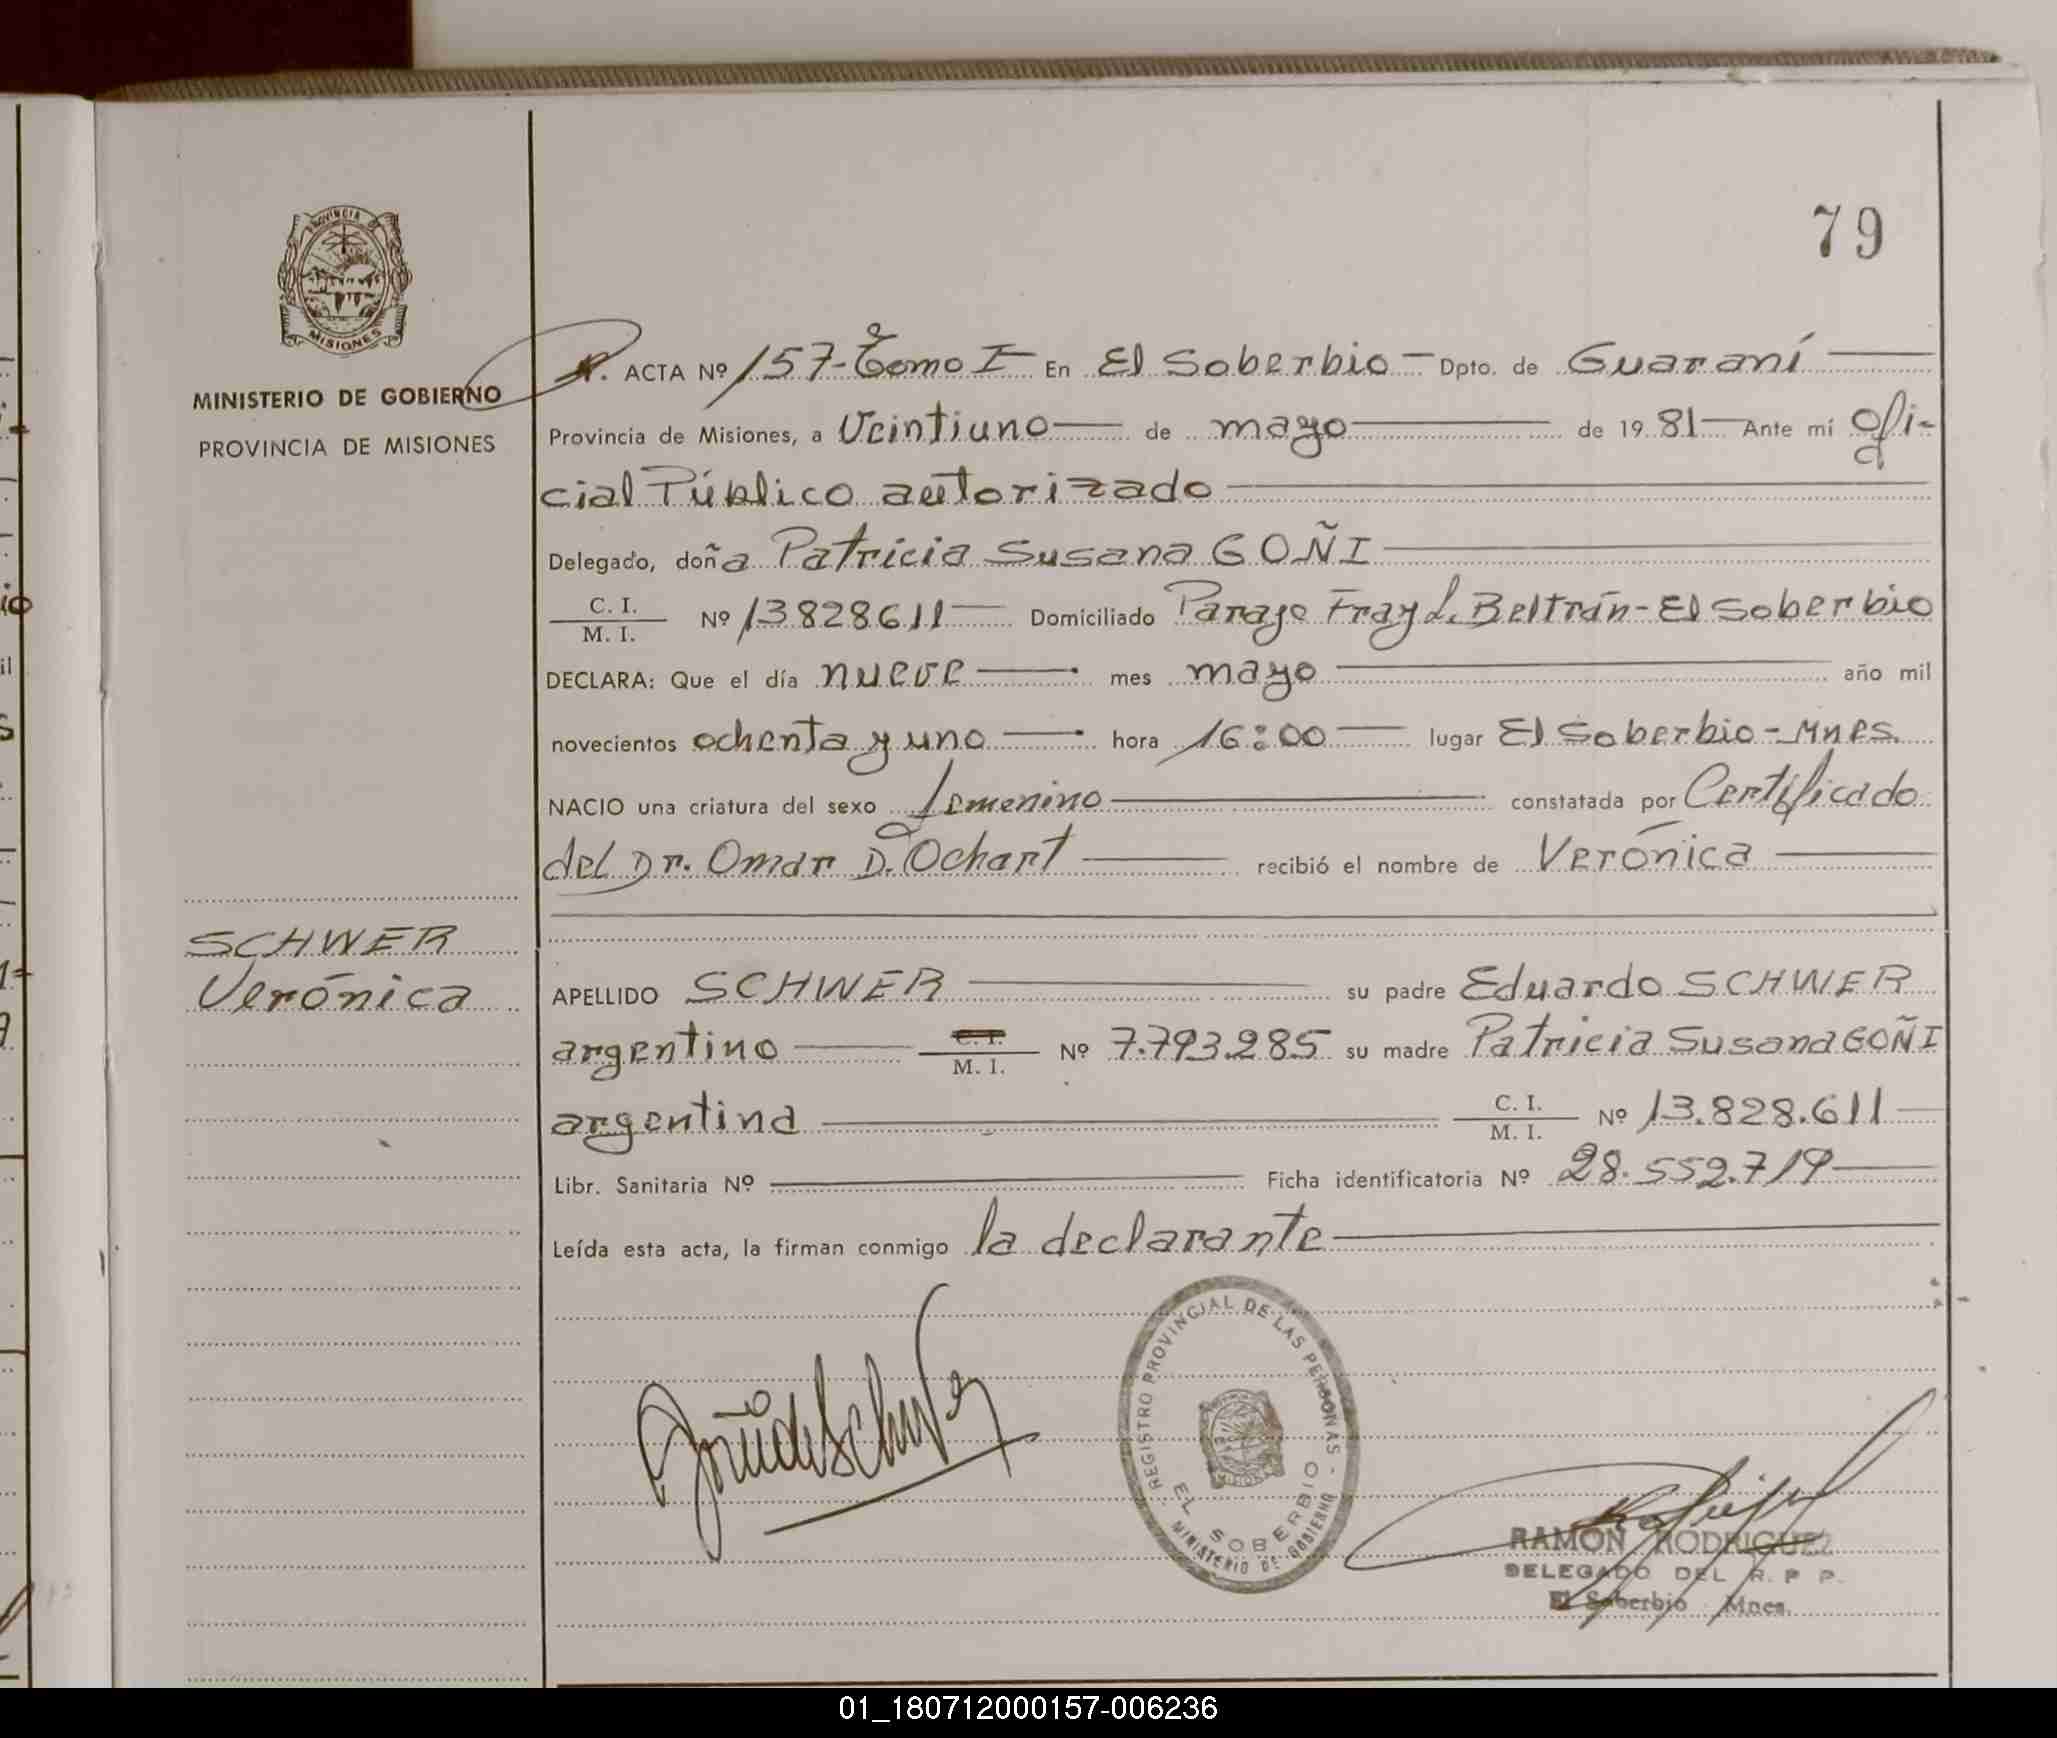 79
PROVINCIA DE
MISIONES
MINISTERIO DE GOBIERNO
PROVINCIA DE MISIONES
ACTA Nº 157-Tomo I En El Soberbio - Dpto. de Guaraní
Provincia de Misiones, a Veintiuno de mayo de 1981 Ante mí Ofi-
cial Público autorizado
Delegado, doña Patricia Susana GOÑI
C. I.
M. I. Nº 13828611 Domiciliado Paraje Fray L. Beltrán - El Soberbio
DECLARA: Que el día nueve mes mayo año mil
novecientos ochenta y uno hora 16:00 lugar El Soberbio - Mnes.
NACIO una criatura del sexo femenino constatada por Certificado
del Dr. Omar D. Ochart recibió el nombre de Verónica
SCHWER
Verónica
APELLIDO SCHWER su padre Eduardo SCHWER
argentino C. I.
M. I. Nº 7.793.285 su madre Patricia Susana GOÑI
argentina C. I.
M. I. Nº 13.828.611
Libr. Sanitaria Nº Ficha identificatoria Nº 28.552.719
Leída esta acta, la firman conmigo la declarante
Goñi de Schwer
REGISTRO PROVINCIAL DE LAS PERSONAS -
MISIONES
EL SOBERBIO
MINISTERIO DE GOBIERNO
RAMON RODRIGUEZ
DELEGADO DEL R. P. P.
El Soberbio Mnes.
01_180712000157-006236